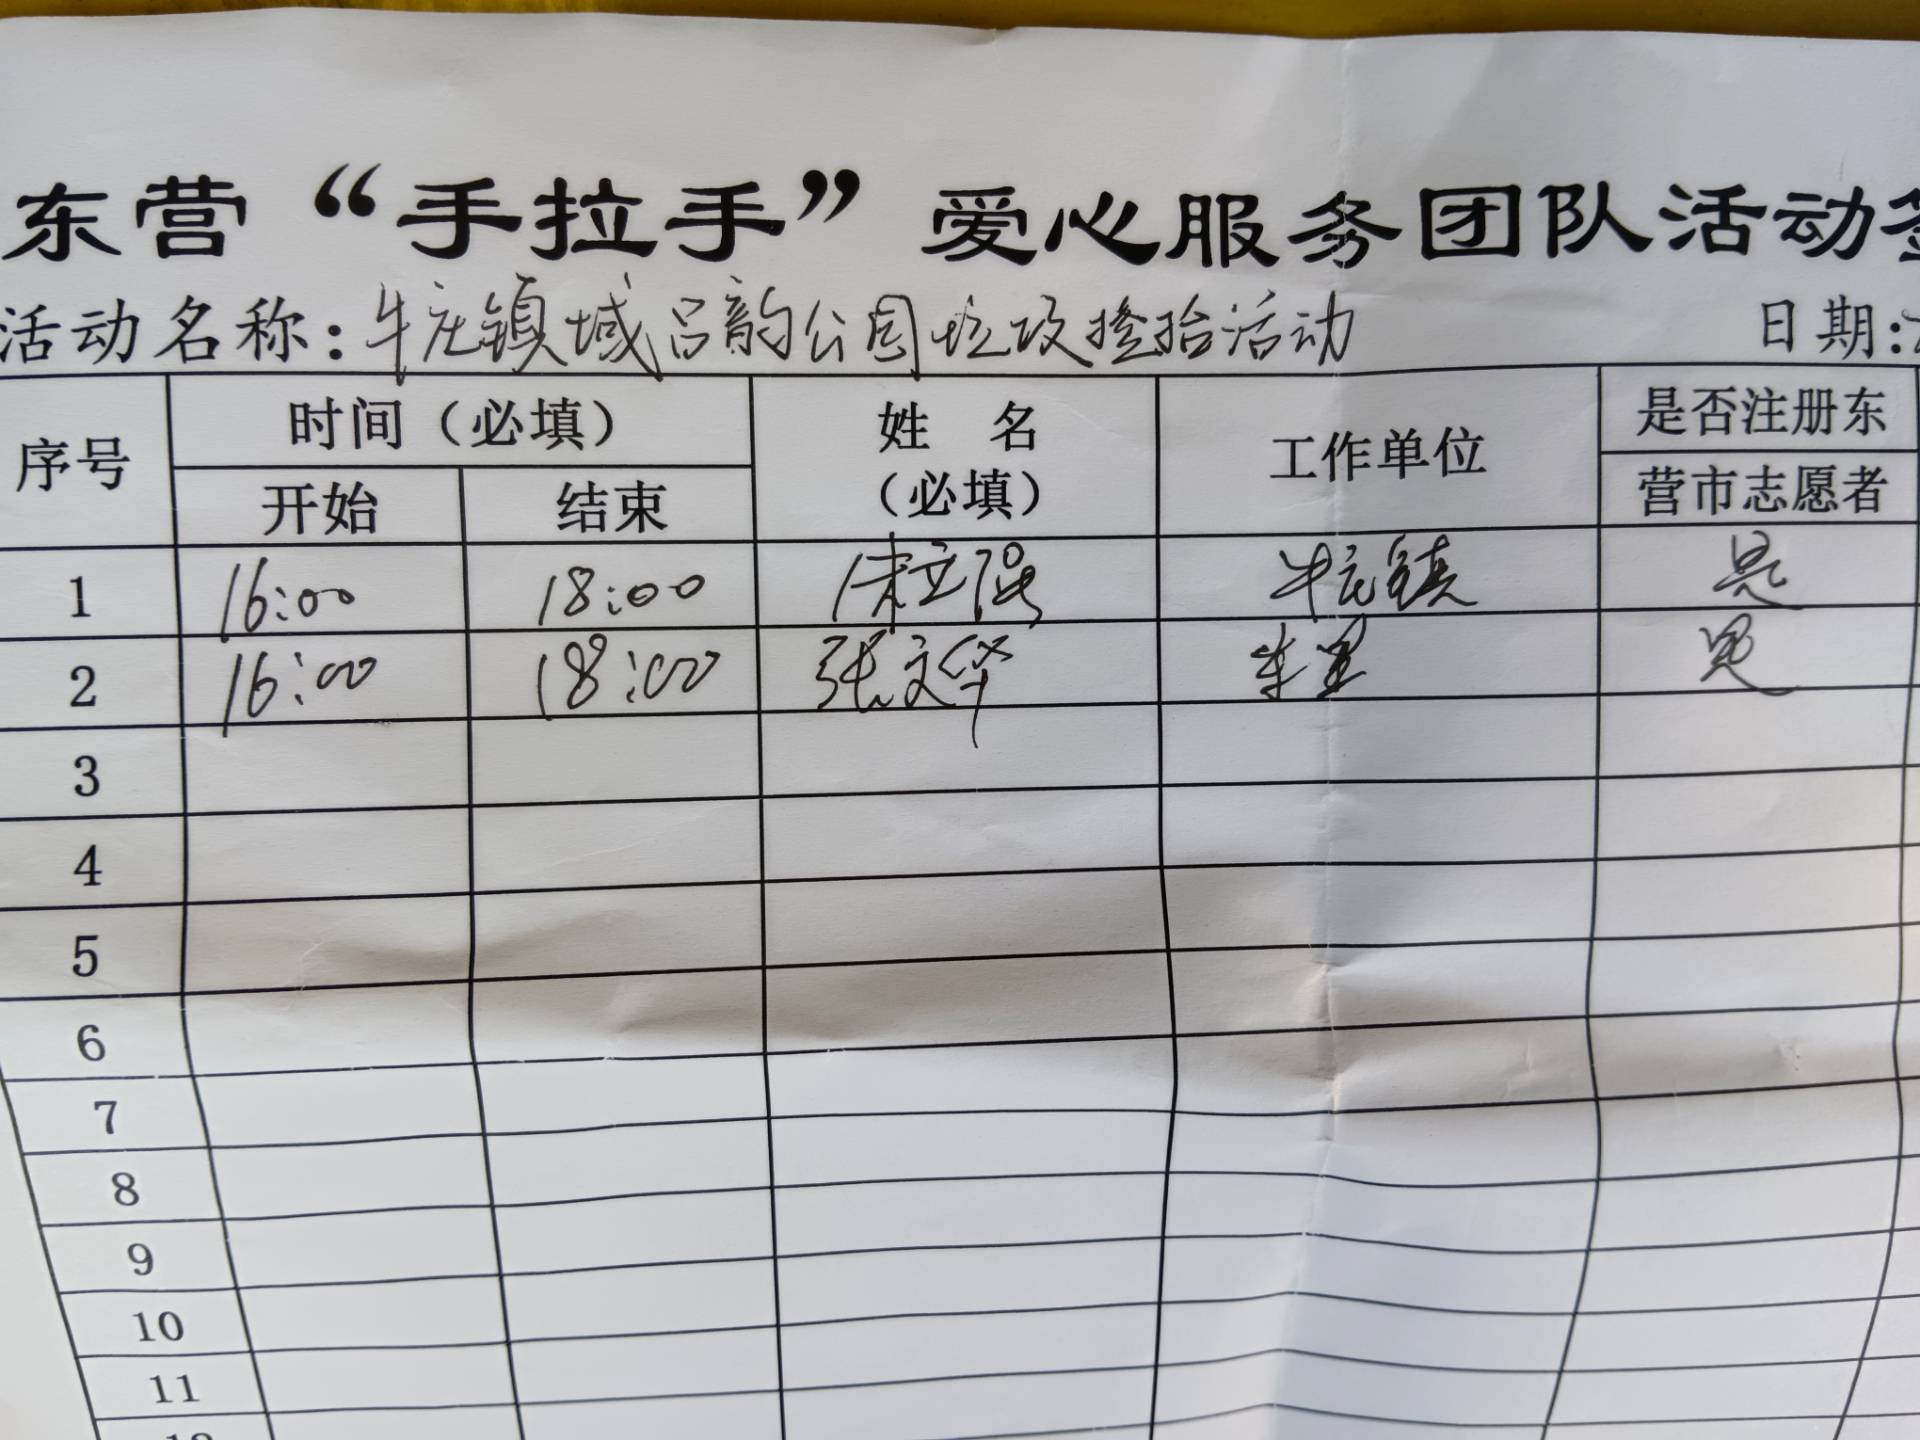 东营“手拉手”爱心服务团队活动
活动名称：牛庄镇域吕韵公园垃圾捡拾活动 日期：
序号 时间（必填） 姓 名（必填） 工作单位 是否注册东
开始 结束 营市志愿者
1 16:00 18:00 立强 牛庄镇 是
2 16:00 18:00 张文华 是
3
4
5
6
7
8
9
10
11